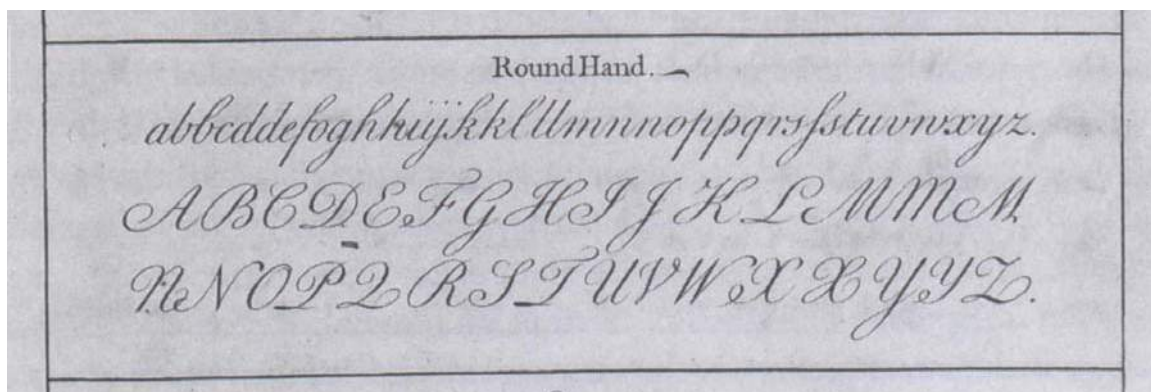 Round Hand.
abbcddefoghhiijkkklllmnnoppqrsſstuvwxyz.
ABCDEFGHIJKLMMM
NNOPQRSTUVWXXYYZ.